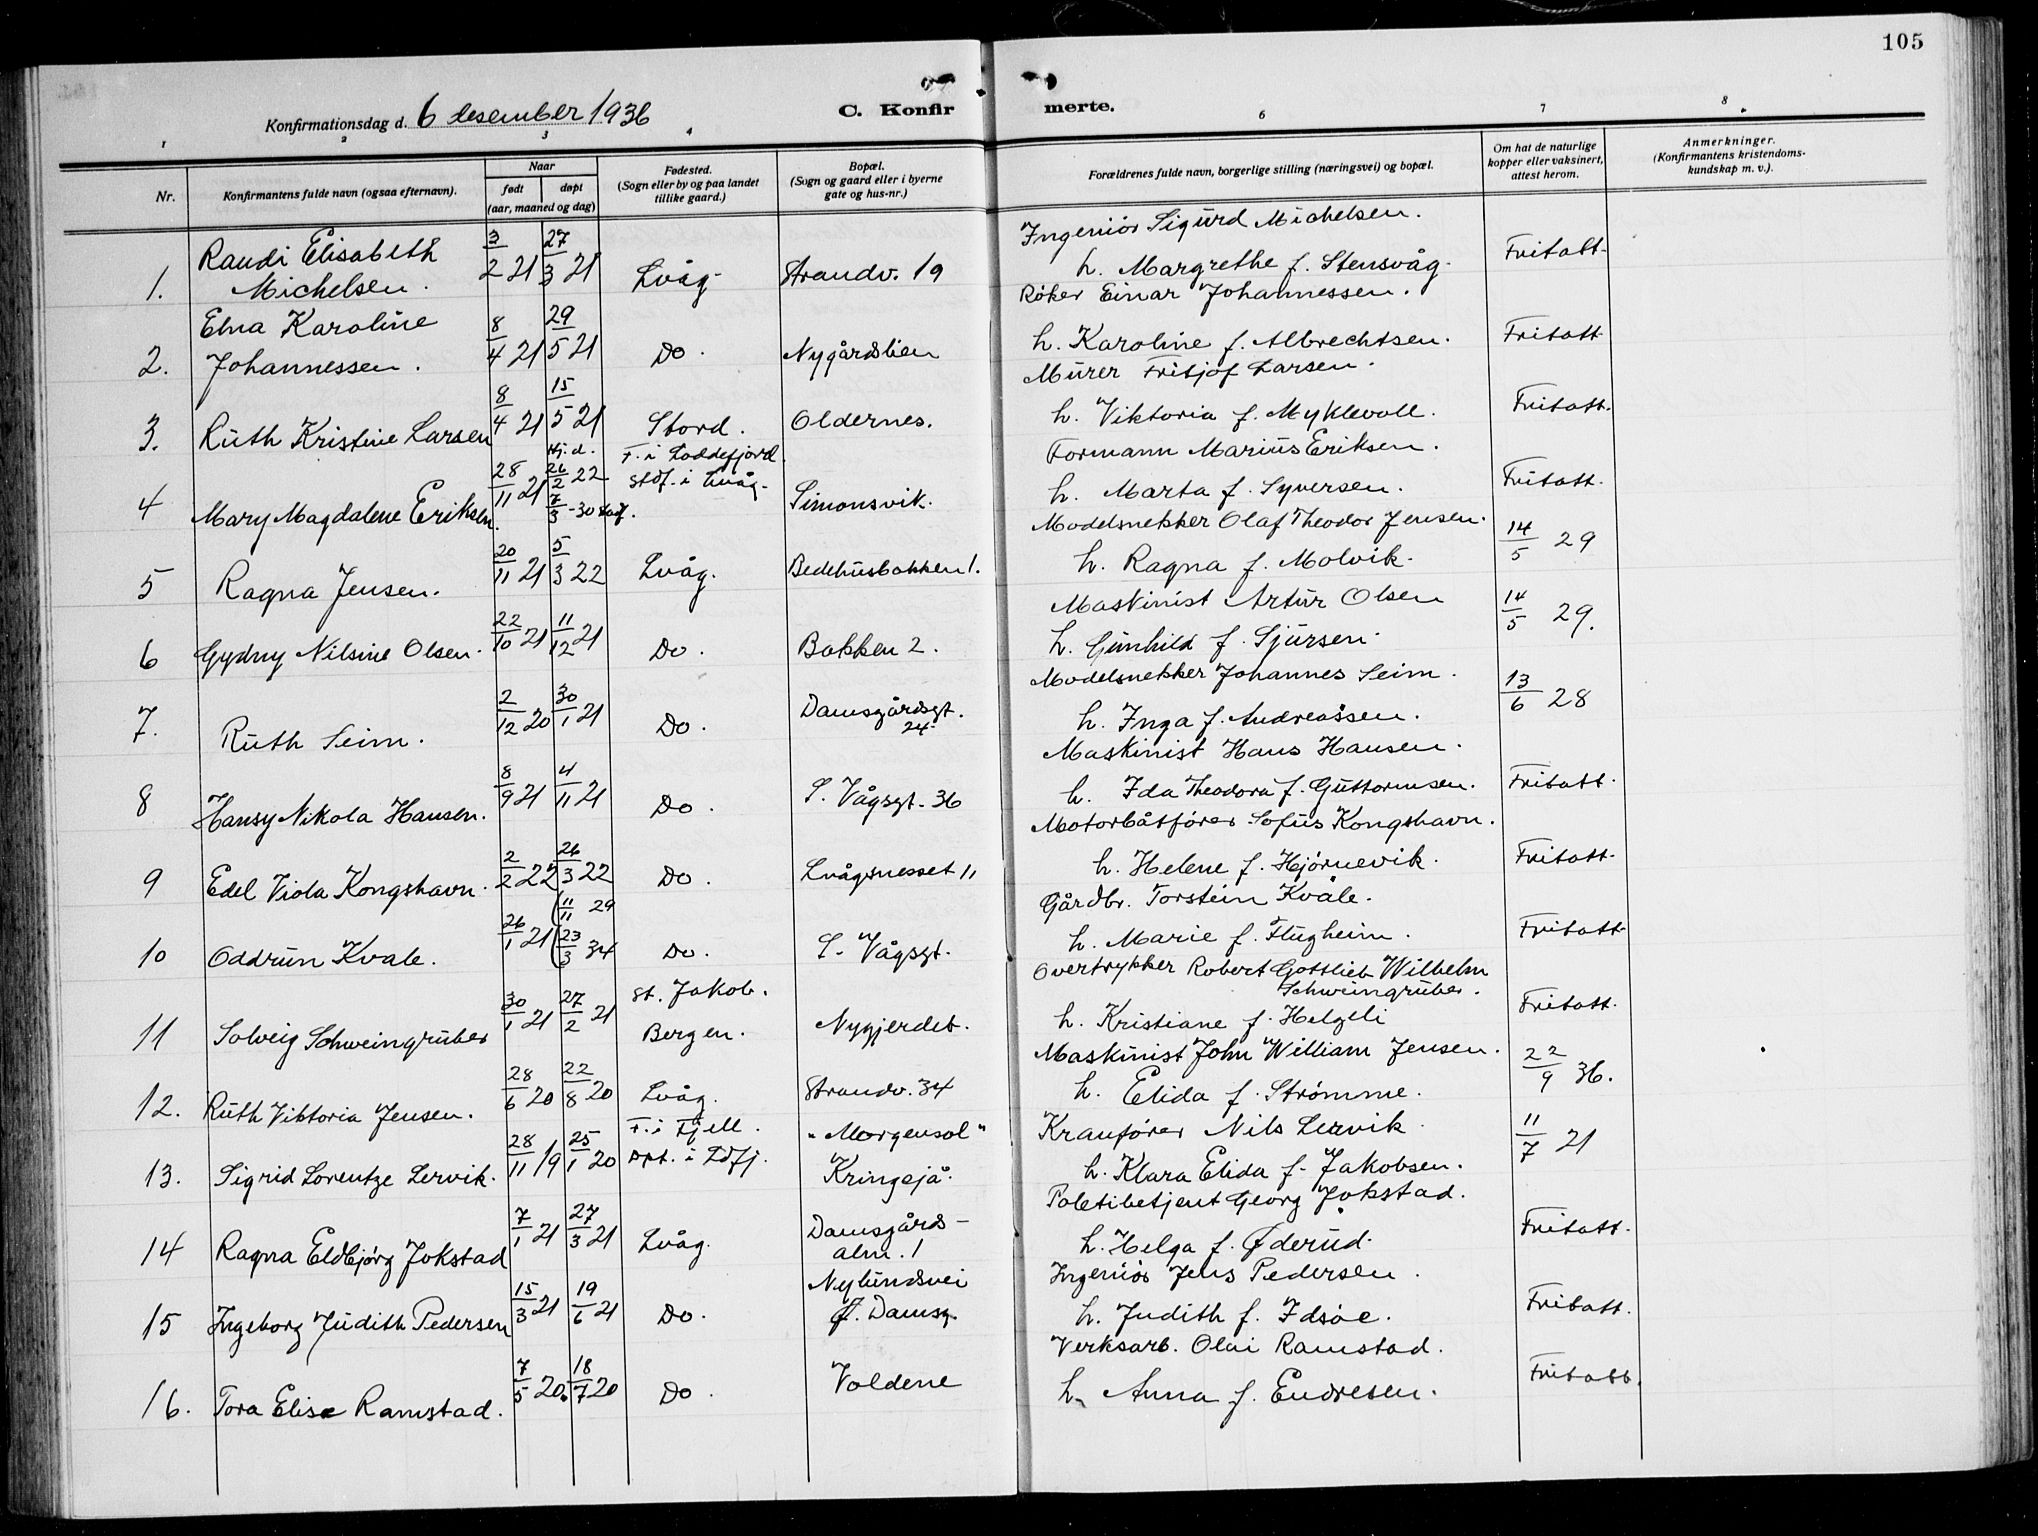 105
Konfirmationsdag d. 6 desember 1936
C. Konfirmerte.
1 2 3 4 6 7 8
Nr.
Konfirmantens fulde navn (ogsaa efternavn).
Naar
født døpt
(aar, maaned og dag)
Fødested.
(Sogn eller by og paa landet
tillike gaard.)
Bopæl.
(Sogn og gaard eller i byerne
gate og hus-nr.)
Forældrenes fulde navn, borgerlige stilling (næringsvei) og bopæl.
Om hat de naturlige
kopper eller vaksinert,
attest herom.
Anmerkninger.
(Konfirmantens kristendoms-
kundskap m. v.).
Randi Elisabeth 3/2 21 27/3 21 Ingeniør Sigurd Michelsen.
1. Michelsen. Lvåg. Strandv. 19 h. Margrethe f. Stensvåg. Fritatt.
Elna Karoline 8/4 21 29/5 21 Røker Einar Johannessen.
2. Johannessen. Do. Nygårdslien h. Karoline f. Albrechtsen. Fritatt
8/4 21 15/5 21 Murer Fritjof Larsen.
3. Ruth Kristine Larsen Stord. Oldernes. h. Viktoria f. Myklevoll. Fritatt.
Hj.d. F. i Loddefjord Formann Marius Eriksen.
4 Mary Magdalene Eriksen. 28/11 21 26/2 22 stdf. i Lvåg. Simonsvik. h. Marta f. Syversen. Fritatt.
7/3 - 30 stdf.
Modelsnekker Olaf Theodor Jensen.
5 Ragna Jensen. 20/11 21 5/3 22 Lvåg. Bedehusbakken 1. h. Ragna f. Molvik. 14/5 29
Maskinist Artur Olsen
6 Gydny Nilsine Olsen. 22/10 21 11/12 21 Do. Bakken 2. h. Gunhild f. Sjursen. 14/5 29.
Modelsnekker Johannes Seim.
7. Ruth Seim. 2/12 20 30/1 21 Do. Damsgårdsgt. 24. h. Inga f. Andreassen. 13/6 28
Maskinist Hans Hansen.
8 Hansy Nikola Hansen. 8/9 21 4/11 21 Do. S. Vågsgt. 36 h. Ida Theodora f. Guttormsen. Fritatt.
Motorbåtfører Sofus Kongshavn.
9 Edel Viola Kongshavn. 2/2 22 26/3 22 Do. Lvågsnesset 11 h. Helene f. Hjørnevik. Fritatt.
Gårdbr. Torstein Kvåle.
10 Oddrun Kvale. 26/1 21 (11/11 29 (23/3 34 Do. S. Vågsgt. h. Marie f. Flugheim. Fritatt
Overtrykker Robert Gottlieb Wilhelm
Schweingruber.
11 Solveig Schweingruber 30/1 21 27/2 21 St. Jakob. Bergen. Nygjerdet. h. Kristiane f. Helgeli Fritatt.
Maskinist John William Jensen.
12. Ruth Viktoria Jensen. 28/6 20 22/8 20 Lvåg. Strandv. 34 h. Elida f. Strømme. 22/9 36.
F. i Fjell. „Morgensol“ Kranfører Nils Lervik
13. Sigrid Lorentze Lervik. 28/11 19 25/1 20 Dpt. i Ldfj. Kringsjå. h. Klara Elida f. Jakobsen. 11/7 21
Politibetjent Georg Jokstad.
14 Ragna Eldbjørg Jokstad 7/1 21 27/3 21 Lvåg. Damsgårds-
alm. 1 h. Helga f. Øderud. Fritatt.
Nylundsvei Ingeniør Jens Pedersen.
15 Ingeborg Judith Pedersen 15/3 21 19/6 21 Do. Damsg. h. Judith f. Idsøe. Fritatt.
Verksarb. Olai Ramstad.
16. Tora Elise Ramstad. 7/5 20. 18/7 20 Do. Voldene h. Anna f. Endresen. Fritatt.